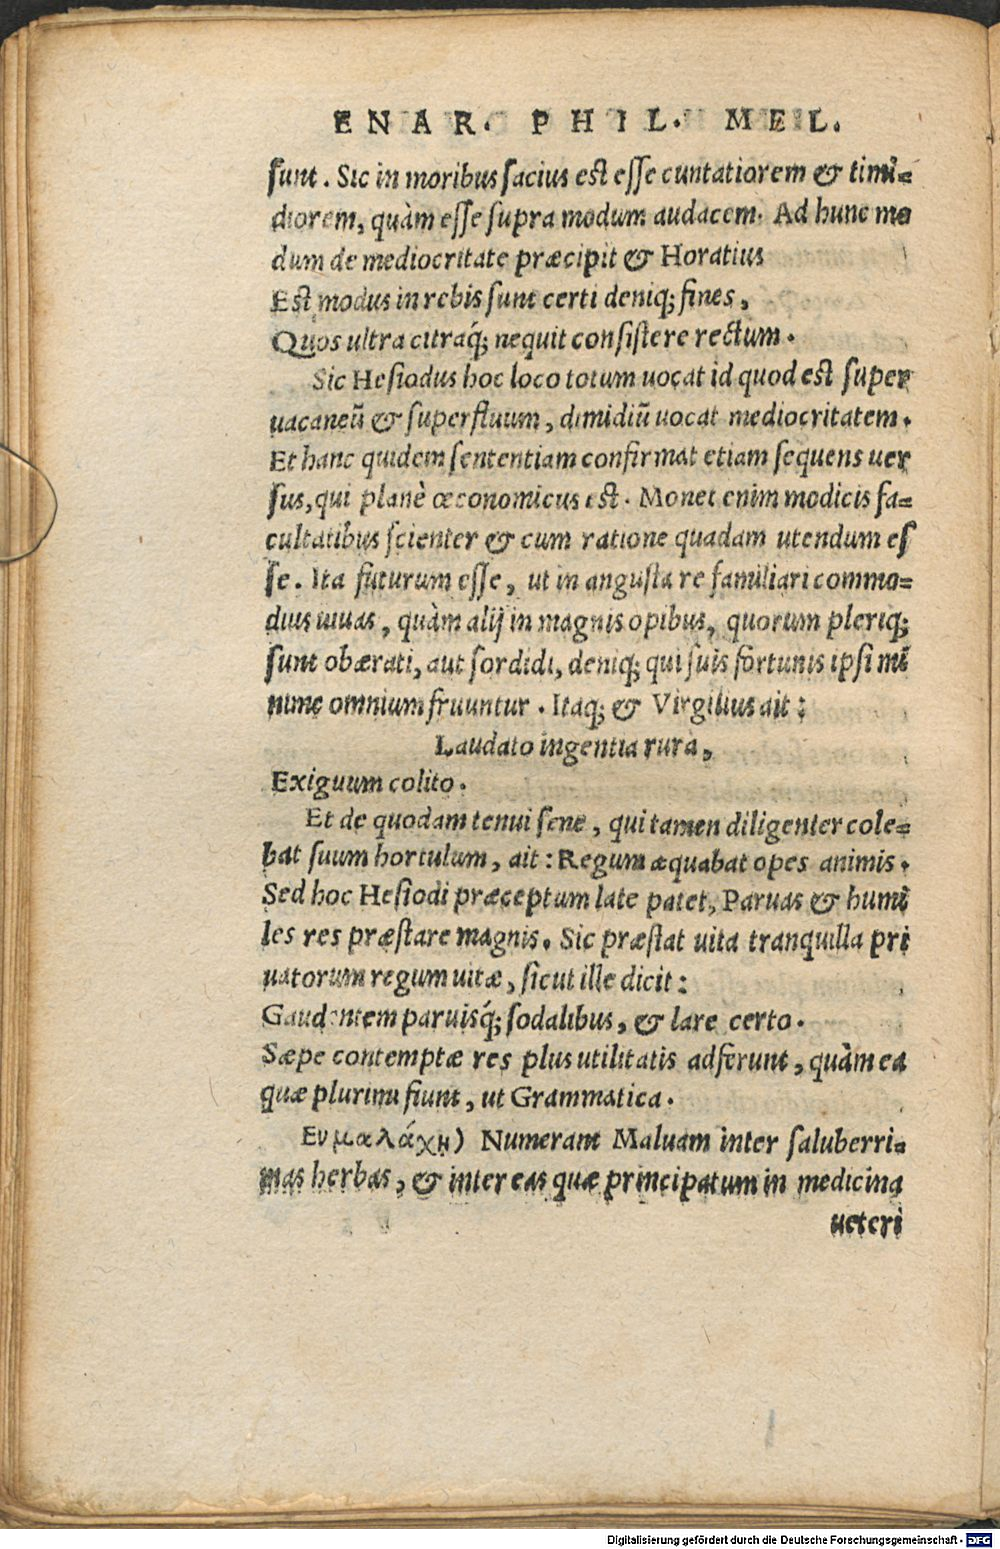 ENAR. PHIL. MEL.
sunt. Sic in moribus sacius est esse cuntatiorem & timi=
diorem, quàm esse supra modum audacem. Ad hunc mo
dum de mediocritate præcipit & Horatius
Est modus in rebis sunt certi deniq; fines,
Quos ultra citraq́; nequit consistere rectum.
Sic Hesiodus hoc loco totum uocat id quod est super
uacaneũ & superfluum, dimidiũ uocat mediocritatem.
Et hanc quidem sententiam confirmat etiam sequens uer
sus, qui planè œconomicus est. Monet enim modicis fa=
cultatibus scienter & cum ratione quadam utendum es
se. Ita futurum esse, ut in angusta re familiari commo=
dius uiuas, quàm alij in magnis opibus, quorum pleriq;
sunt obærati, aut sordidi, deniq; qui suis fortunis ipsi mi
nime omnium fruuntur. Itaq; & Virgilius ait:
Laudato ingentia rura,
Exiguum colito.
Et de quodam tenui sene, qui tamen diligenter cole=
bat suum hortulum, ait: Regum æquabat opes animis.
Sed hoc Hesiodi præceptum late patet, Paruas & humi
les res præstare magnis. Sic præstat uita tranquilla pri
uatorum regum uitæ, sicut ille dicit:
Gaudentem paruisq́; sodalibus, & lare certo.
Sæpe contemptæ res plus utilitatis adferunt, quàm ea
quæ plurimi fiunt, ut Grammatica.
Εν μαλάχη) Numerant Maluam inter saluberri=
mas herbas, & inter eas quæ principatum in medicina
ueteri
Digitalisierung gefördert durch die Deutsche Forschungsgemeinschaft - DFG